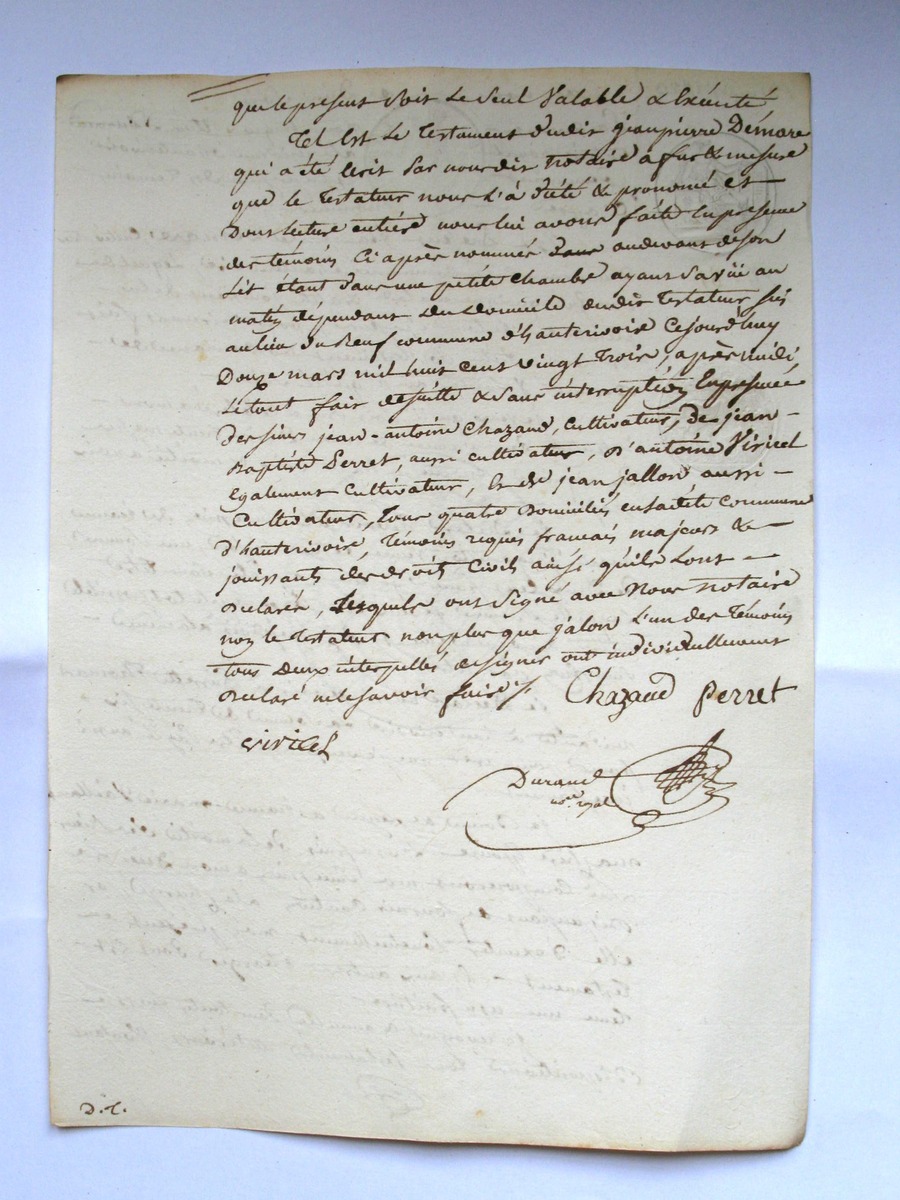 que le present soit le seul Valable & Exécuté
Tel Est le Testament dudit jeanpierre Démare
qui a été écrit par nousdit notaire à fur & mesure
que le Testateur nous l'a dicté & prononcé et
Dont lecture entiere nous lui avons faite En presence
des témoins Ci après nommés audevant de son
Lit étant dans une petite chambre ayant sa vüe au
matin dépendant du Domicile dudit Testateur sis
au lieu du commune d'hauterivoire Cejourd'huy
Douze mars mil huit cent vingt Trois, après midi
Le tout fait desuitte & sans interruption En presence
Des sieurs jean-antoine Chazaud, cultivateur, de jean-
Baptiste Perret, aussi cultivateur, d'antoine Viricel
Egalement Cultivateur, Et de jean jallon aussi -
Cultivateur, Tous quatre Domiciliés ensadite Commune
D'hauterivoire, Témoins requis francais majeurs & -
jouissants des droits Civils ainsi qu'ils L'ont -
Déclaré, Lesquels ont Signé avec Nous notaire
non le Testateur non plus que jalon L'un des Témoins
Tous Deux interpellés designer ont individuellement
Déclaré ne le savoir faire ./.
Chazaud Perret
viricel
Durand
nore. royal
D.T.